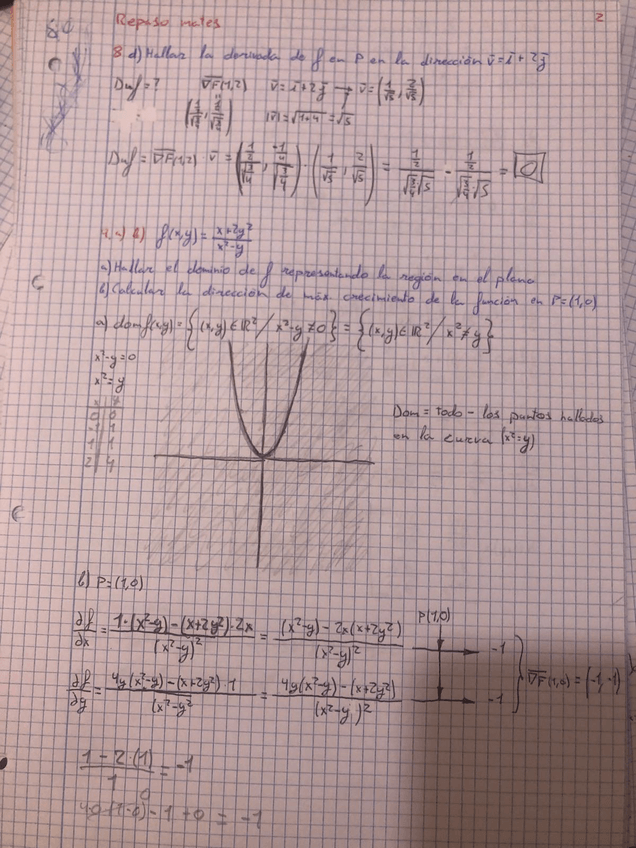 Repaso mates
2
8 d) Hallar la derivada de f en P en la dirección v̄ = ī + 2j̄
Duf = ? ∇F(1,2) v̄ = ī + 2j̄ → v̄ = (1/√5, 2/√5)
|v̄| = √(1+4) = √5
Duf = ∇F(1,2) · v̄ = (1/2/√(3/4), -1/4/√(3/4)) · (1/√5, 2/√5) = 1/2/√(3/4)√5 - 1/2/√(3/4)·√5 = 0
f(x,y) = x+2y²/x²-y
a) Hallar el dominio de f representando la región en el plano
b) Calcular la dirección de máx crecimiento de la función en P=(1,0)
a) domf(x,y) = {(x,y) ∈ ℝ² / x²-y ≠ 0} = {(x,y) ∈ ℝ² / x² ≠ y}
x²-y=0
x²=y
x y
0 0
-1 1
1 1
2 4
Dom = todo - los puntos hallados
en la curva (x²=y)
b) P=(1,0)
P(1,0)
∂f/∂x = 1·(x²-y)-(x+2y²)·2x/(x²-y)² = (x²-y)-2x(x+2y²)/(x²-y)² → -1
∇F(1,0) = (-1,-1)
∂f/∂y = 4y(x²-y)-(x+2y²)·1/(x²-y² = 4y(x²-y)-(x+2y²)/(x²-y)² → -1
1-2·(1)/1 = -1
4·0·(1-0)-1+0 = -1